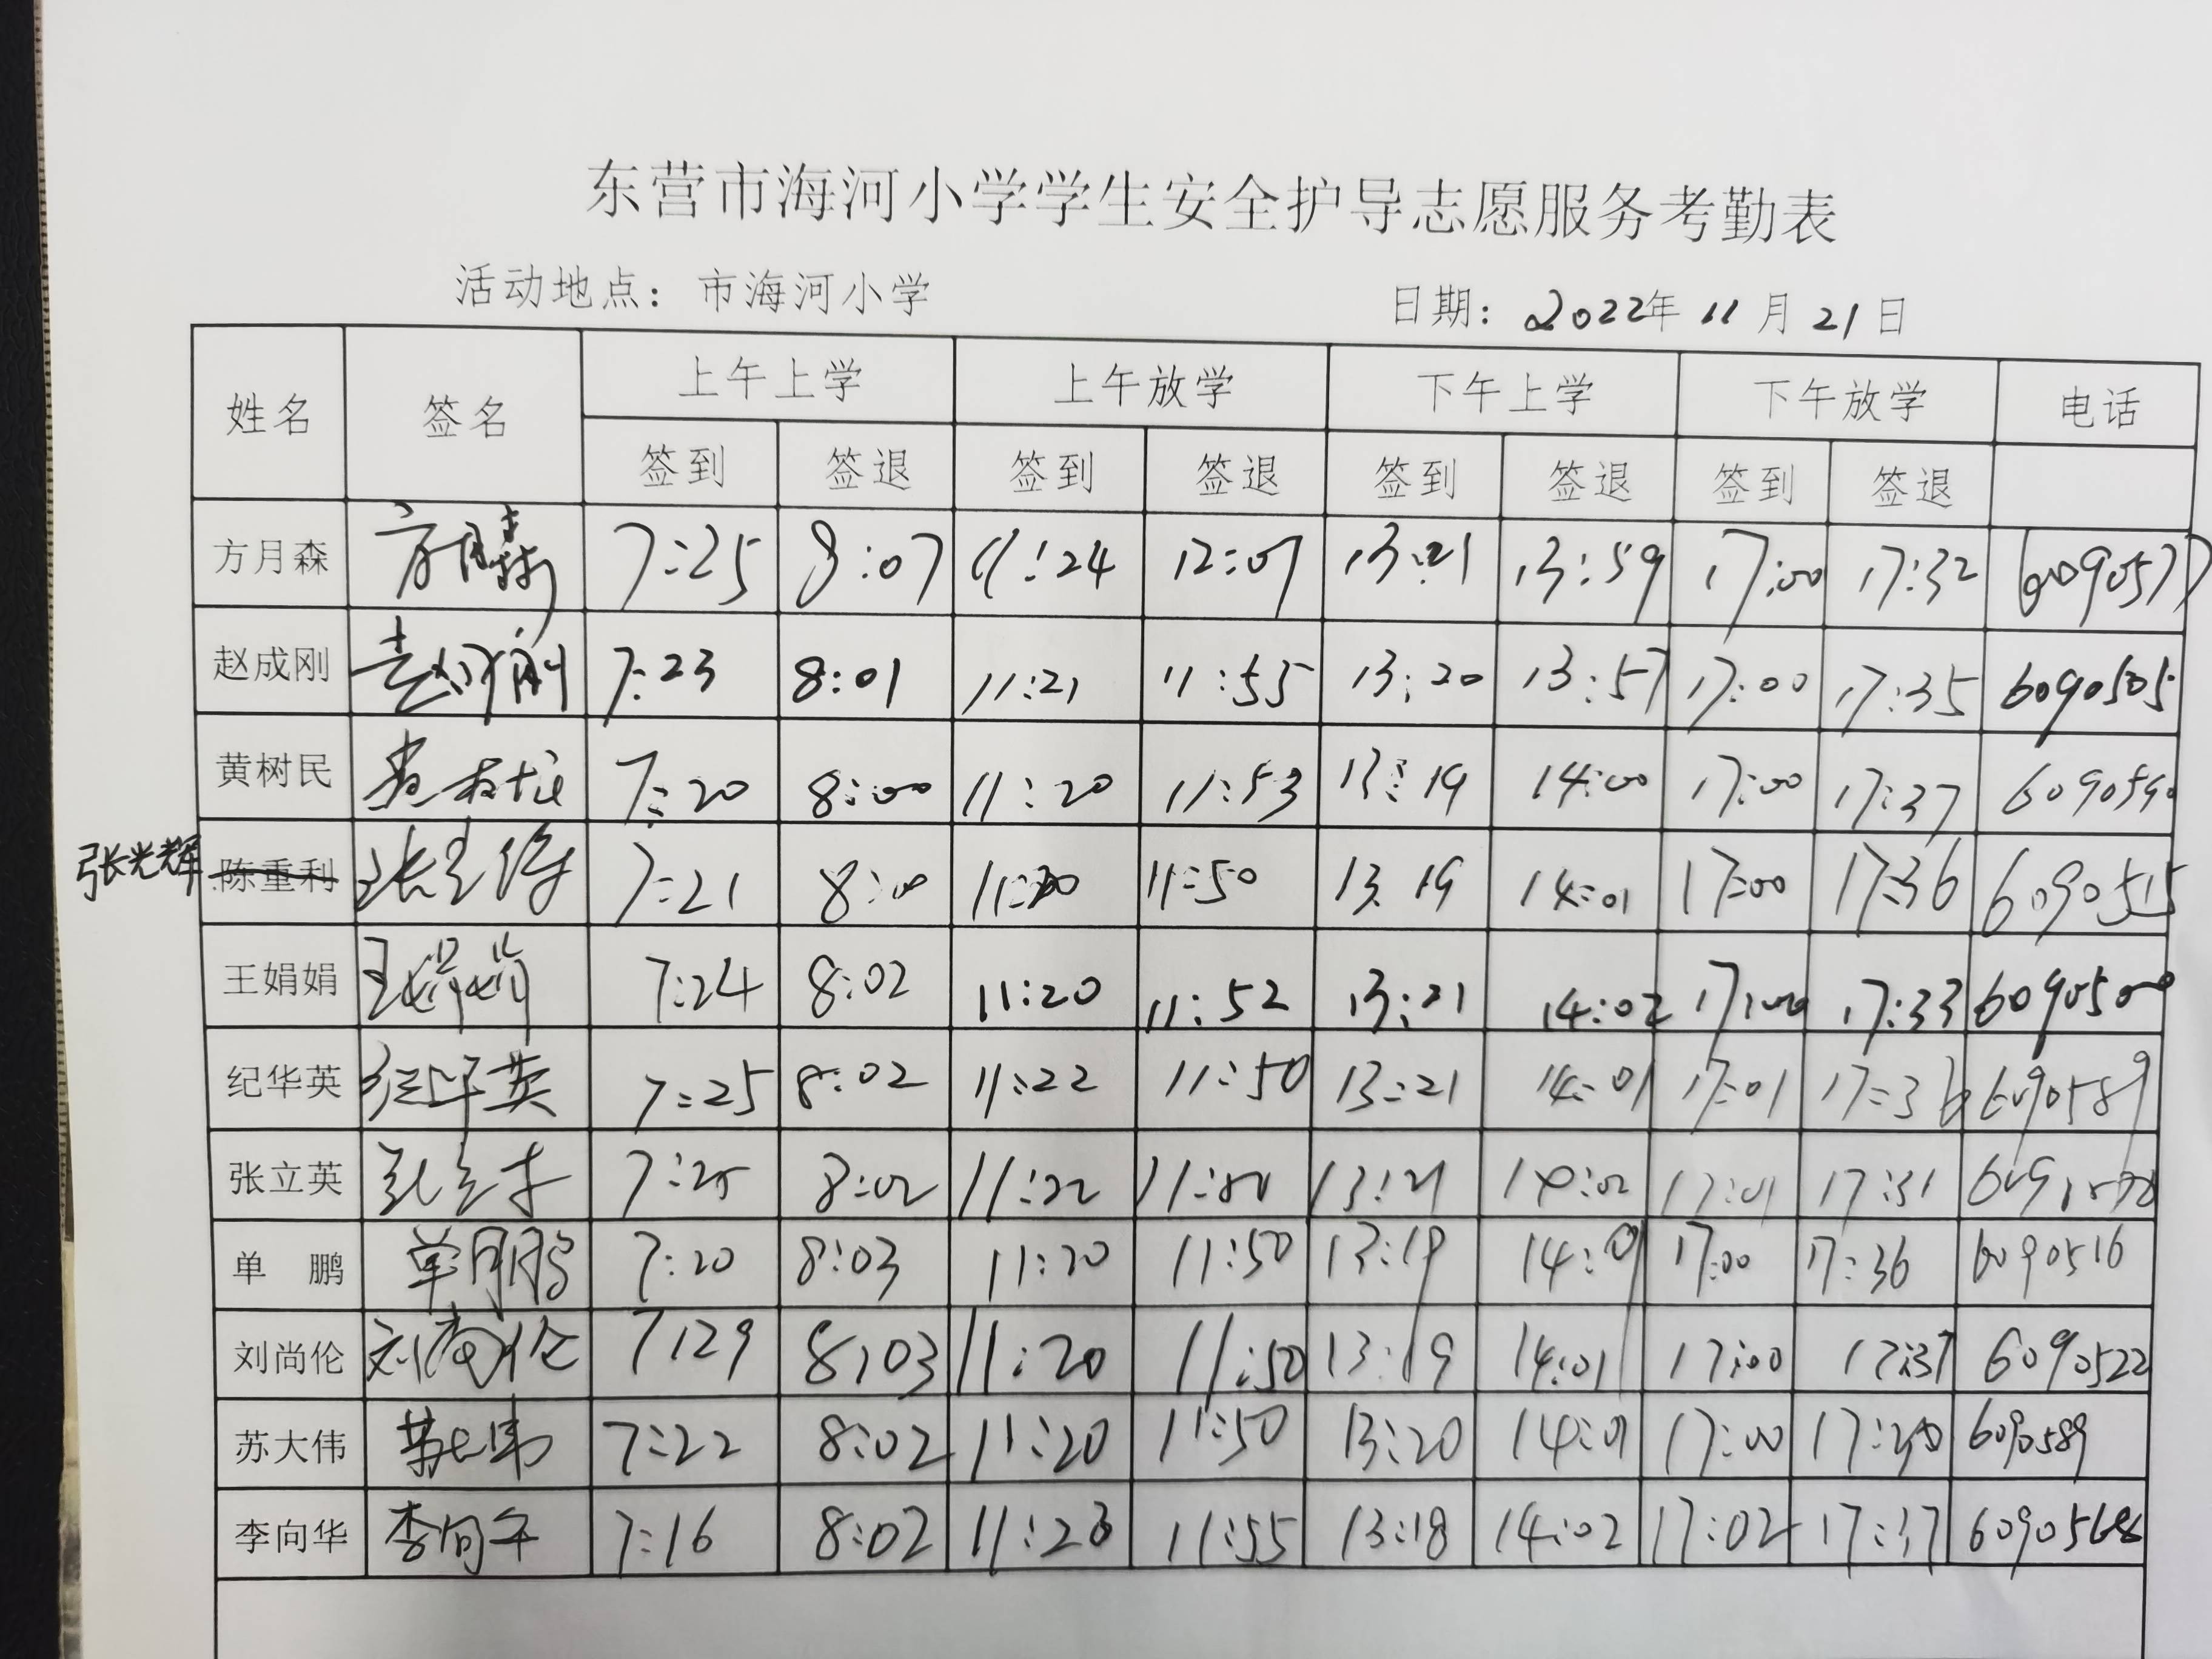 东营市海河小学学生安全护导志愿服务考勤表
活动地点：市海河小学 日期：2022年11月21日
姓名 签名 上午上学 上午放学 下午上学 下午放学 电话
签到 签退 签到 签退 签到 签退 签到 签退
方月森 方月森 7:25 8:07 11:24 12:07 13:21 13:59 17:00 17:32 6090577
赵成刚 赵成刚 7:23 8:01 11:21 11:55 13:20 13:57 17:00 17:35 6090505
黄树民 7:20 8:00 11:20 11:53 13:19 14:00 17:00 17:37 6090590
张光辉 陈重利 张光辉 7:21 8:00 11:20 11:50 13:19 14:01 17:00 17:36 6090515
王娟娟 王娟娟 7:24 8:02 11:20 11:52 13:21 14:02 17:00 17:33 6090500
纪华英 纪华英 7:25 8:02 11:22 11:50 13:21 14:01 17:01 17:36 6090589
张立英 张立英 7:25 8:02 11:22 13:21 14:02 17:01 17:31
单鹏 单鹏 7:20 8:03 11:20 11:50 13:19 14:01 17:00 17:36 6090516
刘尚伦 刘尚伦 7:29 8:03 11:20 11:50 13:19 14:01 17:00 17:37 6090522
苏大伟 苏大伟 7:22 8:02 11:20 11:50 13:20 14:01 17:00 6090589
李向华 李向华 7:16 8:02 11:23 11:55 13:18 14:02 17:02 17:37 6090568